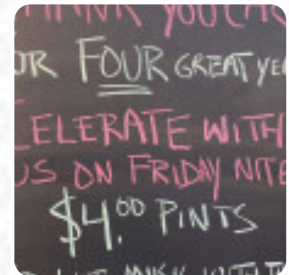 THANK YOU
FOUR GREAT
ELERATE WITH
US ON FRIDAY NITE
$4.00 PINTS